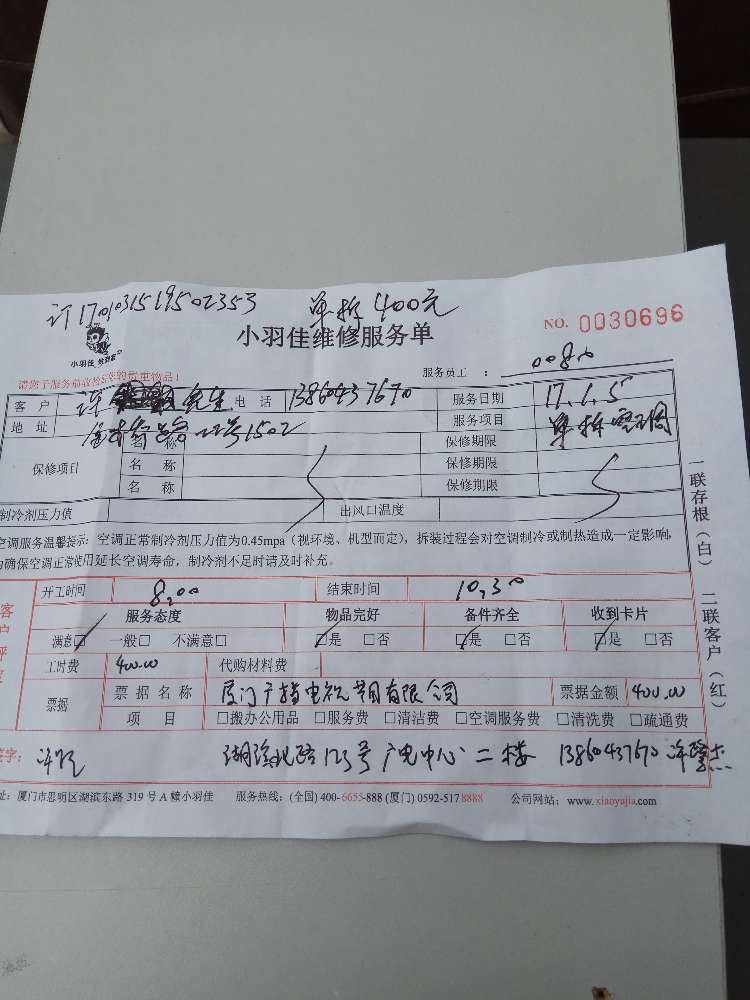 订1701031519502353 单拆400元
小羽佳维修服务单 NO. 0030696
小羽佳
请您于服务前收拾好您的贵重物品！ 服务员工：
客户 许 先生 电话 13860437670 服务日期 17.1.5
地址 1502 服务项目 单拆空调
保修项目 名称 保修期限
名称 保修期限
名称 保修期限
制冷剂压力值 出风口温度
空调服务温馨提示：空调正常制冷剂压力值为0.45mpa（视环境、机型而定），拆装过程会对空调制冷或制热造成一定影响，
为确保空调正常使用延长空调寿命，制冷剂不足时请及时补充。
开工时间 8:00 结束时间 10:30
服务态度 物品完好 备件齐全 收到卡片
满意□ 一般□ 不满意□ □是 □否 □是 □否 □是 □否
工时费 400.00 代购材料费
票据 票据名称 厦门广播电视 有限公司 票据金额 400.00
项目 □搬办公用品 □服务费 □清洁费 □空调服务费 □清洗费 □疏通费
签字： 湖滨北路123号广电中心二楼 13860437670
址：厦门市思明区湖滨东路319号A幢小羽佳 服务热线：(全国) 400-6655-888 (厦门) 0592-5178888 公司网站：www.xiaoyujia.com
一联存根（白） 二联客户（红）
客户评定